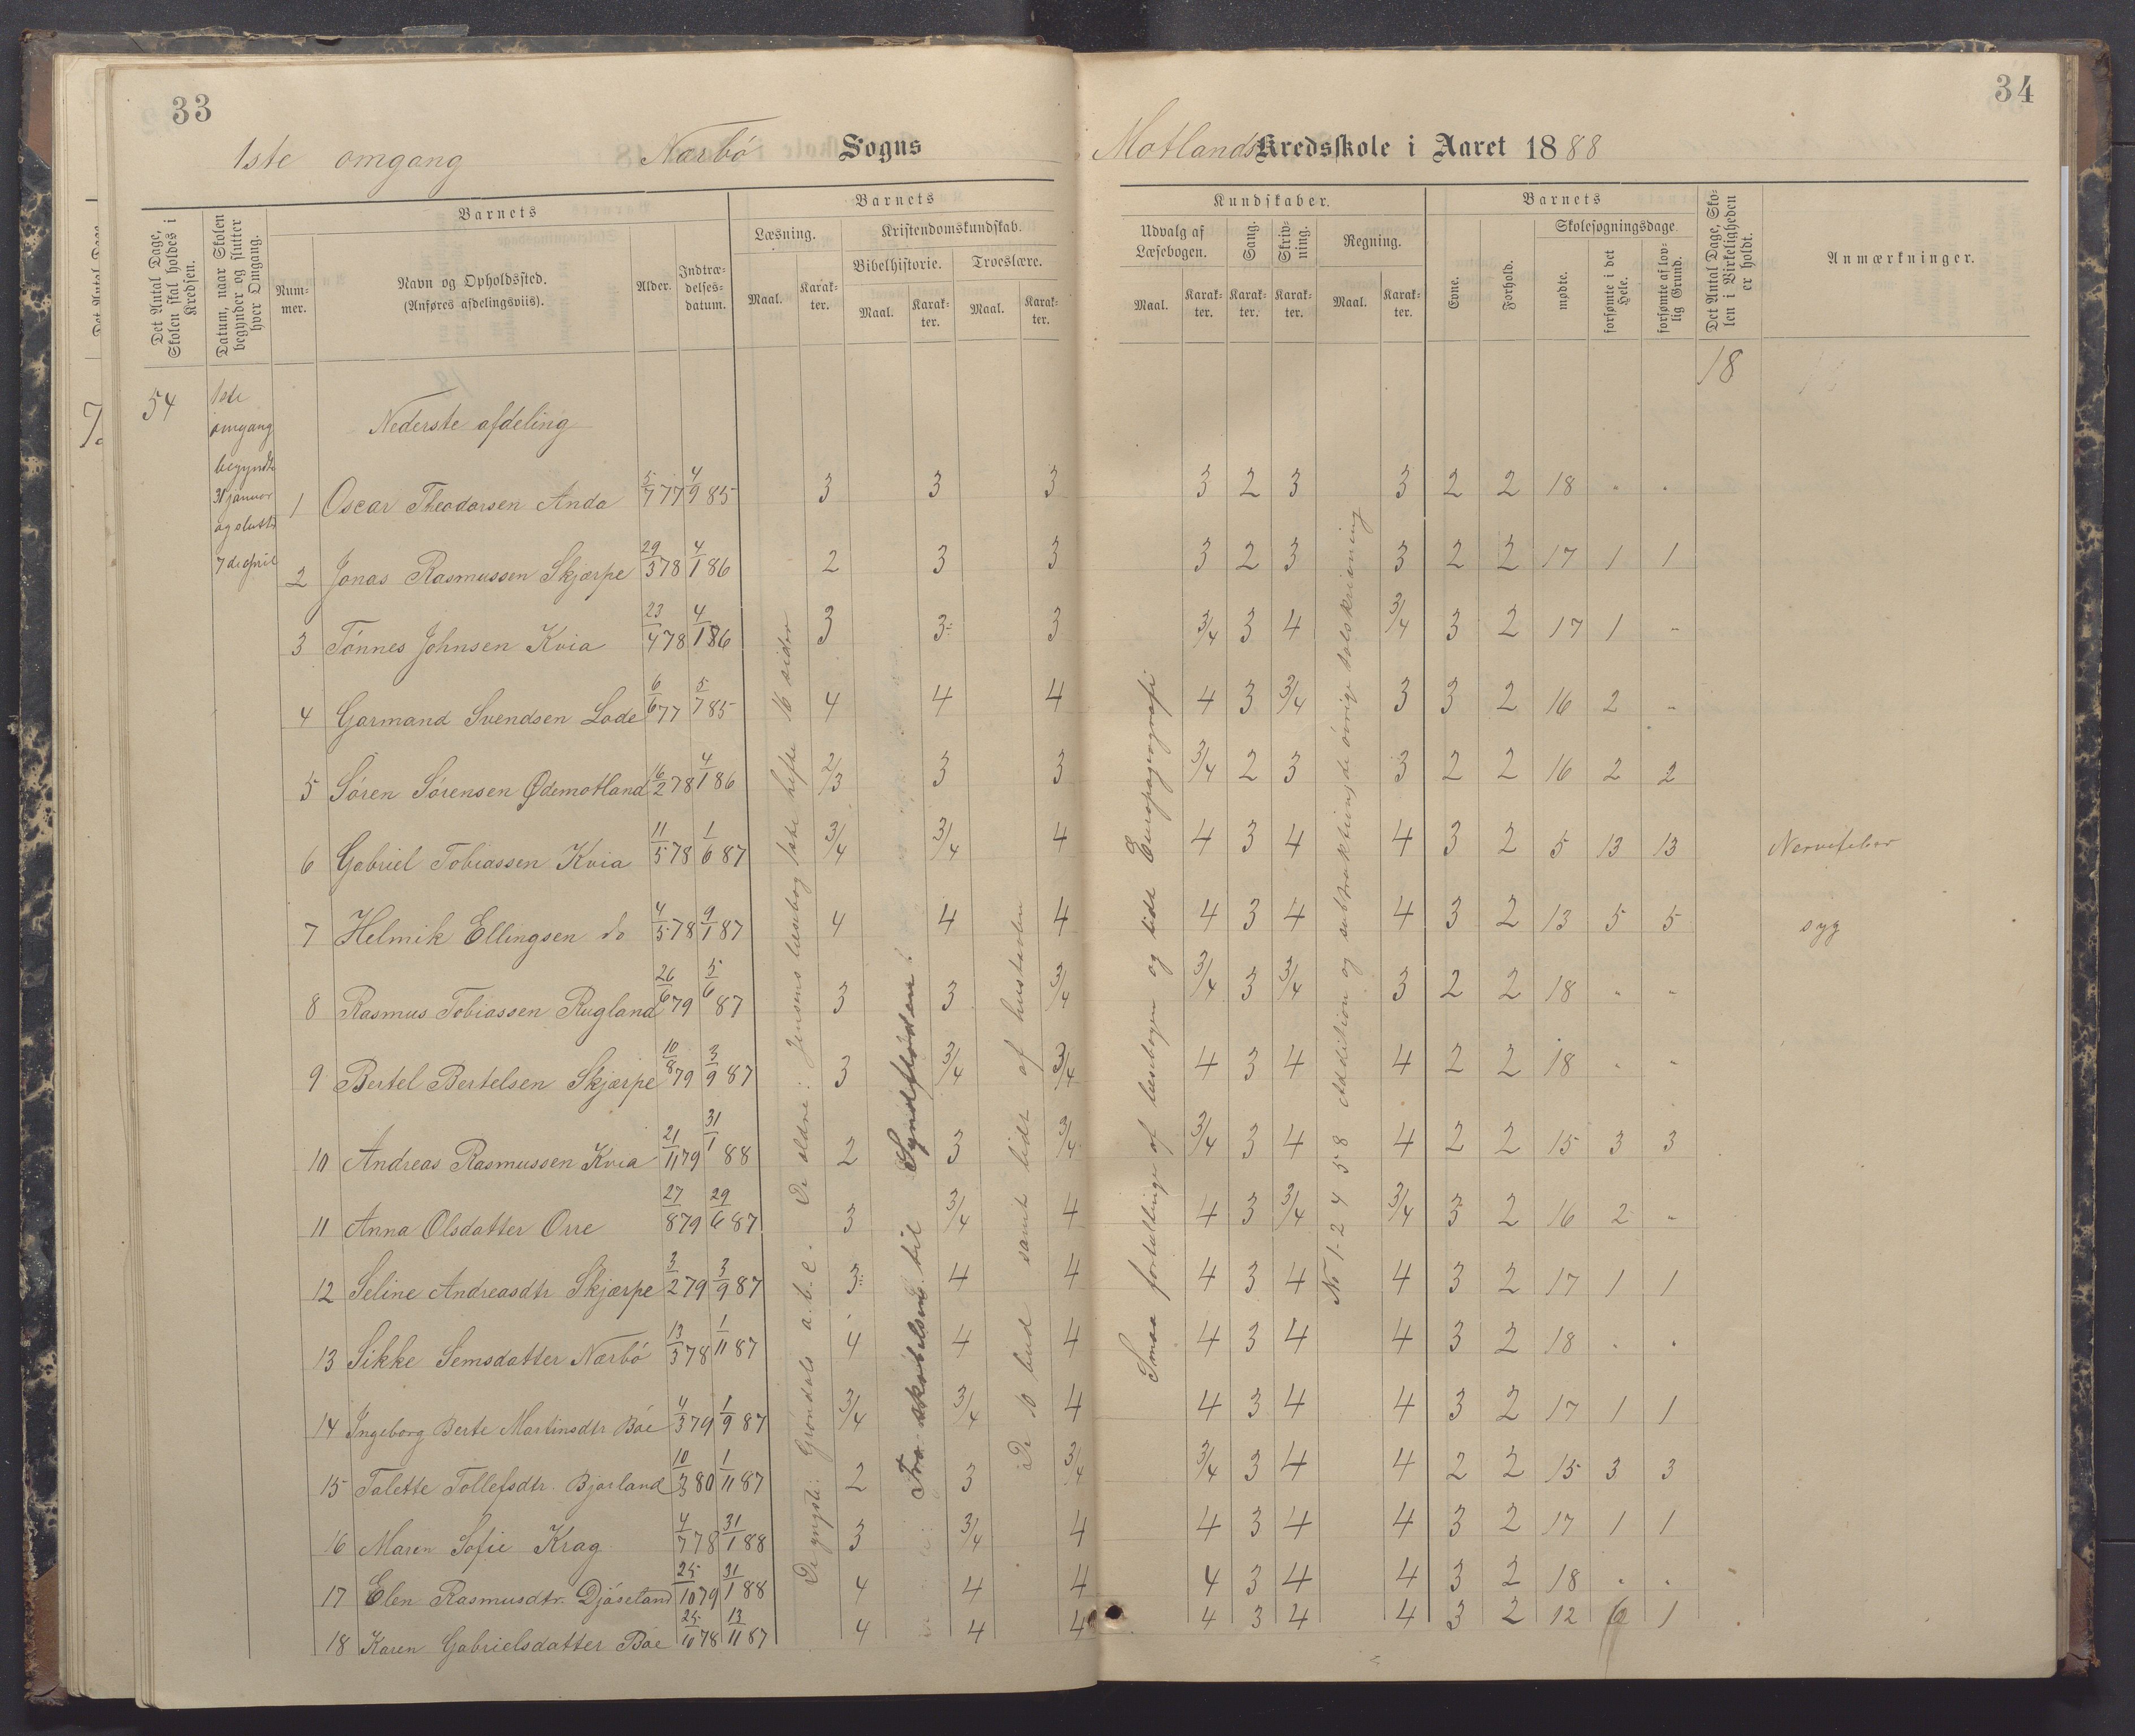 33
34
1ste omgang Nærbö Sogns Motlands Kredsskole i Aaret 1888
Det Antal Dage, Skolen skal holdes i Kredsen.
Datum, naar Skolen begynder og slutter hver Omgang.
Barnets
Nummer.
Navn og Opholdssted.
(Anføres afdelingsviis).
Alder.
Indtrædelsesdatum.
Barnets
Læsning.
Maal. Karakter.
Kristendomskundskab.
Bibelhistorie. Troeslære.
Maal. Karakter. Maal. Karakter.
Kundskaber.
Udvalg af Læsebogen.
Maal. Karakter.
Sang. Karakter.
Skrivning. Karakter.
Regning.
Maal. Karakter.
Barnets
Evne. Forhold.
Skolesøgningsdage.
mødte. forsømte i det Hele. forsømte af lovlig Grund.
Det Antal Dage, Skolen i Virkeligheden er holdt.
Anmærkninger.
54
18
1ste
omgang
begyndte
31 januar
og slutte
7de april
Nederste afdeling
1 Oscar Theodorsen Anda 5/7 77 4/9 85 3 3 3 3 2 3 3 2 2 18 " "
2 Jonas Rasmussen Skjærpe 29/3 78 4/1 86 2 3 3 3 2 3 3 2 2 17 1 1
3 Tönnes Johnsen Kvia 23/4 78 4/1 86 3 3÷ 3 3/4 3 4 3/4 3 2 17 1 "
4 Garmand Svendsen Lode 6/6 77 5/7 85 4 4 4 4 3 3/4 3 3 2 16 2 "
5 Sören Sörensen Ødemotland 16/2 78 4/1 86 2/3 3 3 3/4 2 3 3 2 2 16 2 2
6 Gabriel Tobiassen Kvia 11/5 78 1/6 87 3/4 3/4 4 4 3 4 4 3 2 5 13 13 Nervefeber
7 Helmik Ellingsen do 4/5 78 9/1 87 4 4 4 4 3 4 4 3 2 13 5 5 syg
8 Rasmus Tobiassen Rugland 26/6 79 5/6 87 3 3 3/4 3/4 3 3/4 3 2 2 18 " "
9 Bertel Bertelsen Skjærpe 10/8 79 3/9 87 3 3/4 3/4 4 3 4 4 2 2 18 " "
10 Andreas Rasmussen Kvia 21/11 79 31/1 88 2 3 3/4 3/4 3 4 4 2 2 15 3 3
11 Anna Olsdatter Orre 27/8 79 29/6 87 3 3/4 4 4 3 3/4 3/4 3 2 16 2 "
12 Seline Andreasdtr Skjærpe 3/2 79 3/9 87 3÷ 4 4 4 3 4 4 3 2 17 1 1
13 Sikke Semsdatter Nærbö 13/5 78 1/11 87 4 4 4 4 3 4 4 3 2 18 " "
14 Ingeborg Berte Martinsdtr Böe 4/3 79 1/9 87 3/4 3/4 4 4 3 4 4 3 2 17 1 1
15 Talette Tollefsdtr. Bjorland 10/3 80 1/11 87 2 3 3/4 3/4 3 4 4 2 2 15 3 3
16 Maren Sofie Krag 4/7 78 31/1 88 3 3/4 4 4 3 4 4 3 2 17 1 1
17 Elen Rasmusdtr. Djöseland 25/10 79 31/1 88 4 4 4 4 3 4 4 3 2 18 " "
18 Karen Gabrielsdatter Böe 25/10 78 13/11 87 4 4 4 4 3 4 4 3 2 12 6 1
De yngste: Gröndals a.b.c. De ældre: Jensens læsebog 1ste hefte 16 sider
Fra skabelsen til Syndfloden.
De 10 bud samt lidt af hustavlen
Smaa fortællinger af læsebogen og lidt Europageografi
No 1-2 4 5 8 Addition og subtraktion, de övrige talskrivning